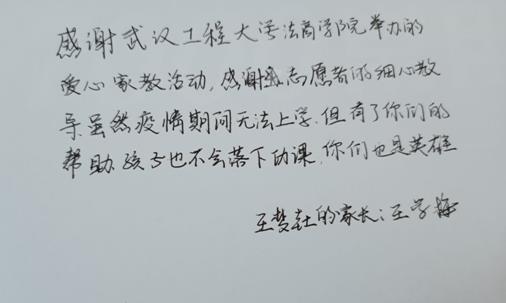 感谢武汉工程大学法商学院举办的
爱心家教活动,感谢志愿者的细心教
导虽然疫情期间无法上学.但有了你们的
帮助.孩子也不会落下功课.你们也是英雄
王梦的家长:王学梅